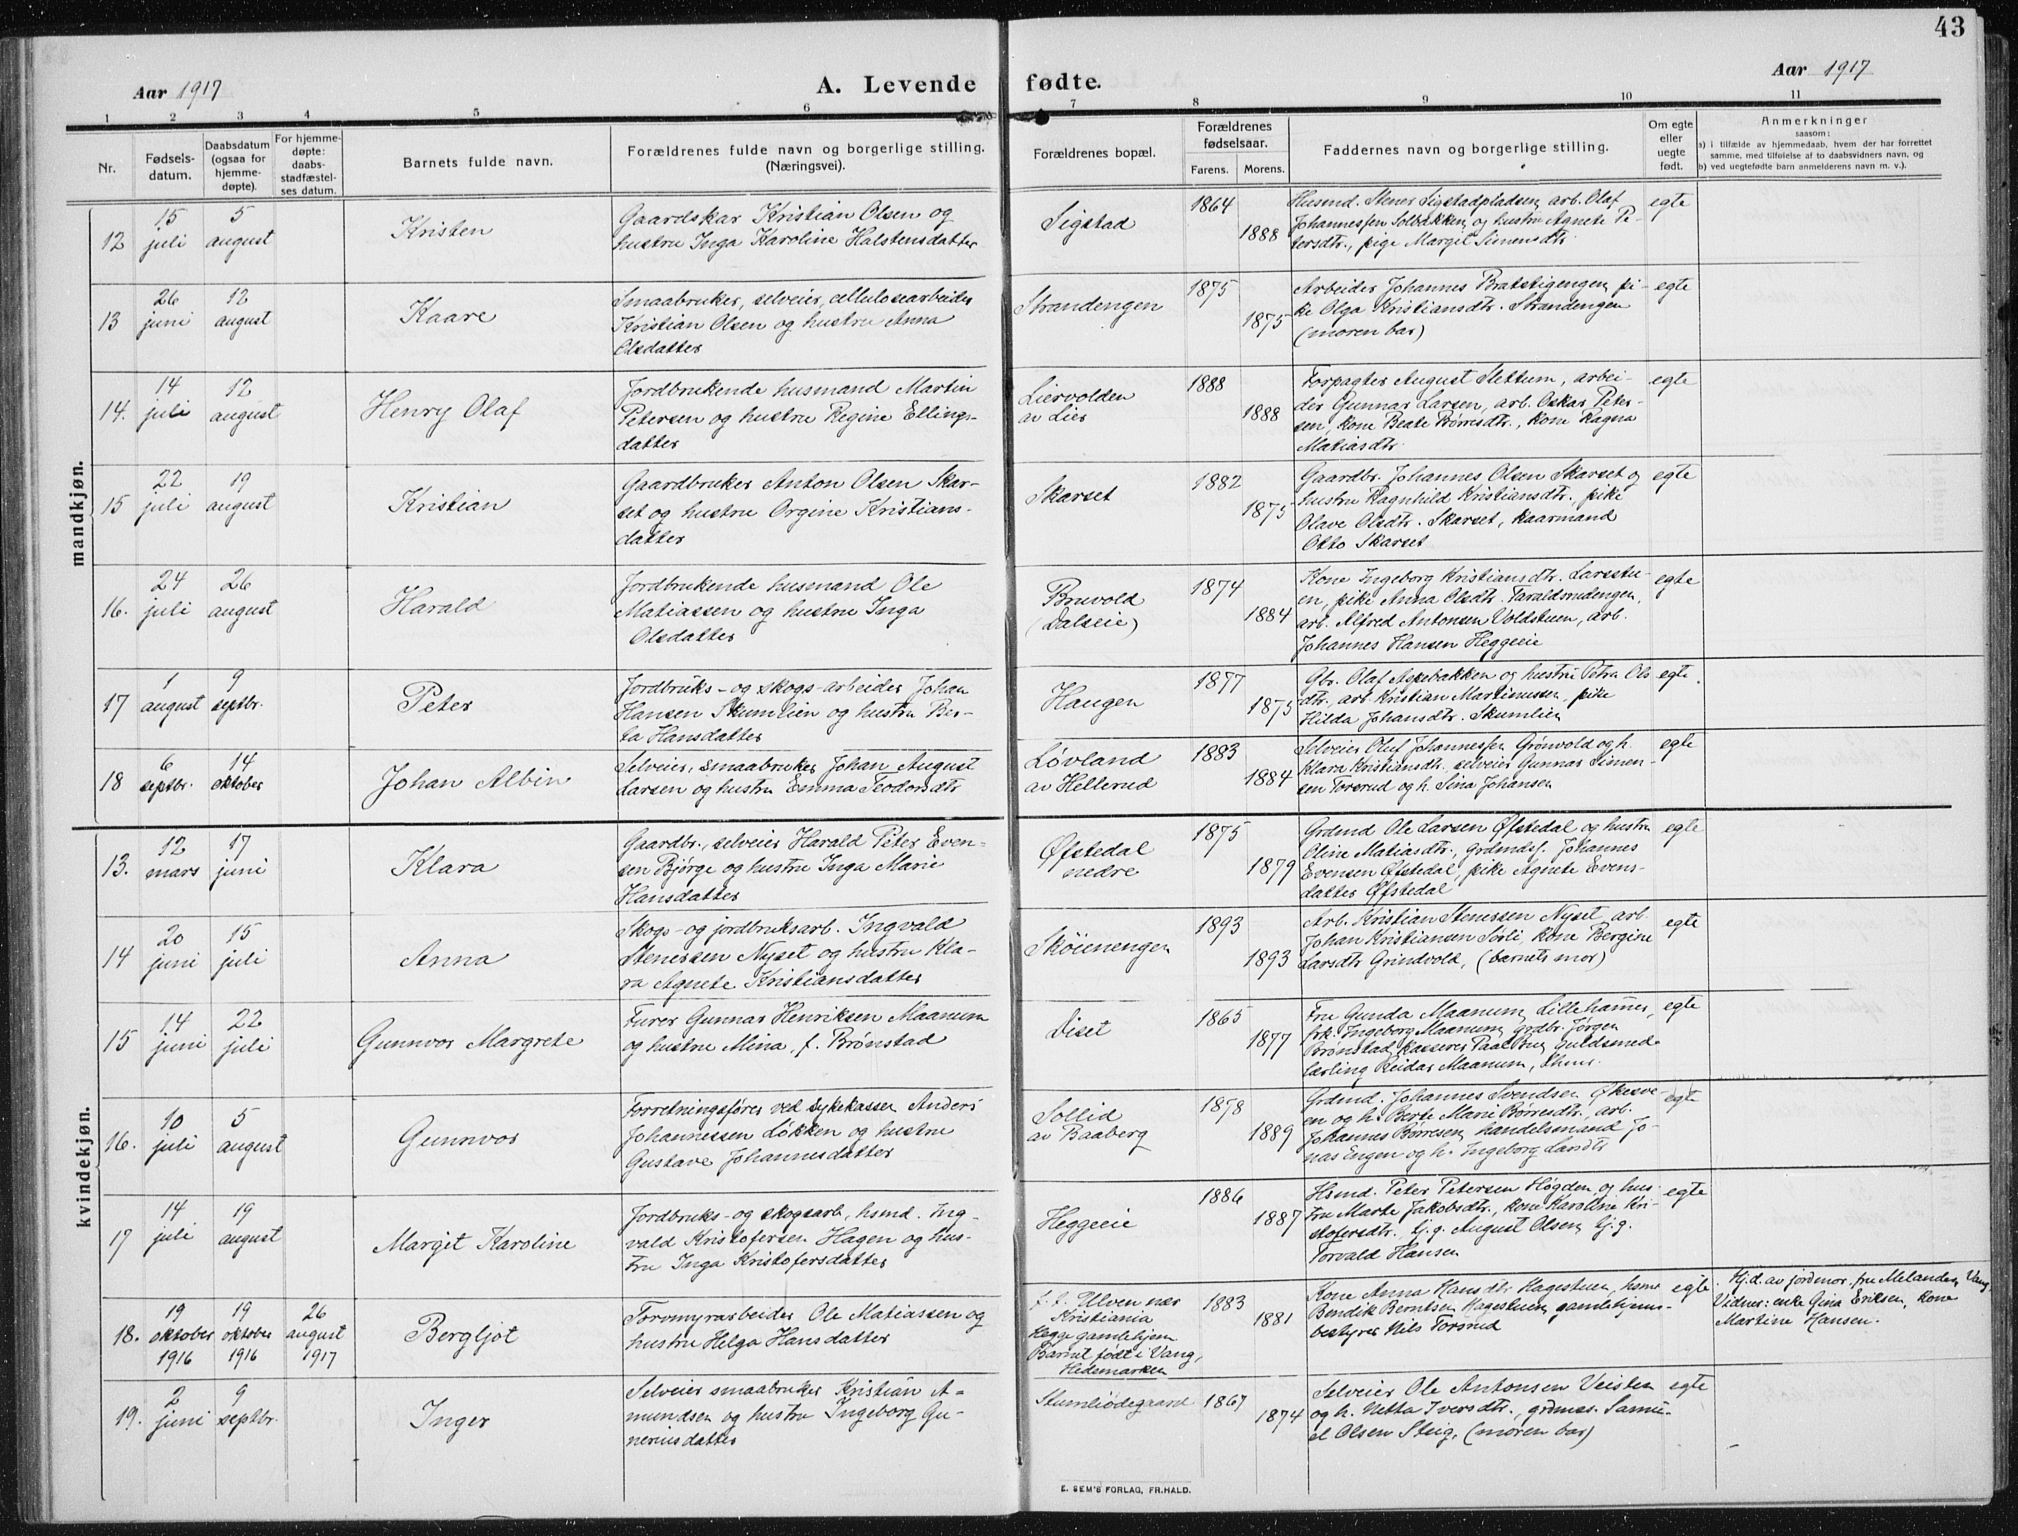 43
Aar 1917
A. Levende fødte.
Aar 1917
1 2 3 4 5 6 7 8 9 10 11
Nr.
Fødsels-
datum.
Daabsdatum
(ogsaa for
hjemme-
døpte).
For hjemme-
døpte:
daabs-
stadfæstel-
ses datum.
Barnets fulde navn.
Forældrenes fulde navn og borgerlige stilling.
(Næringsvei).
Forældrenes bopæl.
Forældrenes
fødselsaar.
Farens. Morens.
Faddernes navn og borgerlige stilling.
Om egte
eller
uegte
født.
Anmerkninger
saasom:
a) i tilfælde av hjemmedaab, hvem der har forrettet
samme, med tilføielse af to daabsvidners navn, og
b) ved uegtefødte barn anmelderens navn m. v.).
mandkjøn.
12
15
juli
5
august
Kristen
Gaardskar Kristian Olsen og
hustru Inga Karoline Halstensdatter
Sigstad
1864
1888
Husmd. Stener Sigstadpladsen, arb. Olaf
Johannessen Solbakken og hustru Agnete Pe-
tersdtr., pige Margit Simensdtr.
egte
13
26
juni
12
august
Kaare
Smaabruker, selveier, cellulosearbeider
Kristian Olsen og hustru Anna
Olsdatter
Strandengen
1875
1875
Arbeider Johannes Bratstigengen, pi-
ke Olga Kristiansdtr. Strandengen
(moren bar)
egte
14.
14
juli
12
august
Henry Olaf
Jordbrukende husmand Martin
Petersen og hustru Regine Ellings-
datter
Liervolden
av Lier
1888
1888
Forpagter August Slettum, arbei-
der Gunnar Larsen, arb. Oskar Peter-
sen, kone Beate Børresdtr., kone Ragna
Matiasdtr.
egte
15
22
juli
19
august
Kristian
Gaardbruker Anton Olsen Skar-
set og hustru Orgine Kristians-
datter
Skarset
1882
1875
Gaardbr. Johannes Olsen Skarset og
hustru Ragnhild Kristiansdtr. pike
Olave Olsdtr. Skarset, kaarmand
Otto Skarset
egte
16.
24
juli
26
august
Harald
Jordbrukende husmand Ole
Matiassen og hustru Inga
Olsdatter
Bruvold
(Dalseie)
1874
1884
Kone Ingeborg Kristiansdtr. Larsstu-
en, pike Anna Olsdtr. Taraldsrudengen,
arb. Alfred Antonsen Voldstuen, arb.
Johannes Hansen Heggeie
egte
17
1
august
9
septbr.
Peter
Jordbruks- og skogs-arbeider Johan
Hansen Skumlien og hustru Ber-
ta Hansdatter
Haugen
1877
1875
Gbr. Olaf Aspebakken og hustru Petra Ols
dtr., arb. Kristian Martinussen, pike
Hilda Johansdtr. Skumlien
egte.
18
6
septbr.
14
oktober
Johan Albin
Selveier, smaabruker Johan August
Larsen og hustru Emma Teodorsdtr
Løvland
av Hellerud
1883
1884
Selveier Oluf Johannessen Grønvold og h.
Klara Kristiansdtr. selveier Gunnar Simen-
sen Torsrud og h. Sina Johansen
egte
kvindekjøn.
13.
12
mars
17
juni
Klara
Gaardbr., selveier Harald Peter Even-
sen Bjørge og hustru Inga Marie
Hansdatter
Øfstedal
nedre
1875
1879
Grdmd Ole Larsen Øfstedal og hustru
Oline Matiasdtr., grdmds. Johannes
Evensen Øfstedal, pike Agnete Evens-
datter Øfstedal
egte
14
20
juni
15
juli
Anna
Skogs- og jordbruksarb. Ingvald
Stenersen Nyset og hustru Kla-
ra Agnete Kristiansdatter
Skøienengen
1893
1893
Arb. Kristian Stenersen Nyset, arb.
Johan Kristiansen Sørli, kone Bergine
Larsdtr Grindvold, (barnets mor)
egte
15
14
juni
22
juli
Gunnvor Margrete
Furer Gunnar Henriksen Maanum
og hustru Mina, f. Brønstad
Diset
1865
1877
Fru Gunda Maanum, Lillehammer,
frk. Ingeborg Maanum, grdbr. Jørgen
Brønstad, kasserer Paal Brug, guldsmed-
lærling Reidar Maanum, Lhmr.
egte
16.
10
juli
5
august
Gunnvor
Forretningsfører ved sykekassen Anders
Johannessen Løkken og hustru
Gustave Johannesdatter
Sollid
av Baaberg
1878
1889
Grdmd. Johannes Svendsen Økesve-
en og h. Berte Marie Børresdtr., arb.
Johannes Børresen, handelsmand Jo-
nas Engen og h. Ingeborg Larsdtr
egte
17
14
juli
19
august
Margit Karoline
Jordbruks- og skogsarb., hsmd. Ing-
vald Kristofersen Hagen og hus-
tru Inga Kristofersdatter
Heggeeie
1886
1887
Hsmd. Peter Petersen Høgden og hus-
tru Marte Jakobsdtr., kone Karoline Kri-
stofersdtr., tj.g. August Olsen, tj.g.
Torvald Hansen
egte
18.
19
oktober
1916
19
oktober
1916
26
august
1917
Bergljot
Torvmyrarbeider Ole Matiassen og
hustru Helga Hansdatter
f.t. Ulven nær
Kristiania
Hegge gamlehjem
Barnet født i Vang,
Hedemarken
1883
1881
Kone Anna Hansdtr Hagestuen, hsmd
Bendik Berntsen Hagestuen, gamlehjems-
bestyrer Nils Torsrud
egte
Hj.d. av jordmor fru Melanden, Vang,
Vidner: enke Gina Eriksen, kone
Martine Hansen.
19.
2
juni
9
septbr.
Inger
Selveier smaabruker Kristian A-
mundsen og hustru Ingeborg Gu-
neriusdatter
Skumliødegaard
1867
1874
Selveier Ole Antonsen Veisten
og h. Netta Iversdtr., grdmds. Samu-
el Olsen Steig, (moren bar)
egte
E. SEM'S FORLAG, FR.HALD.